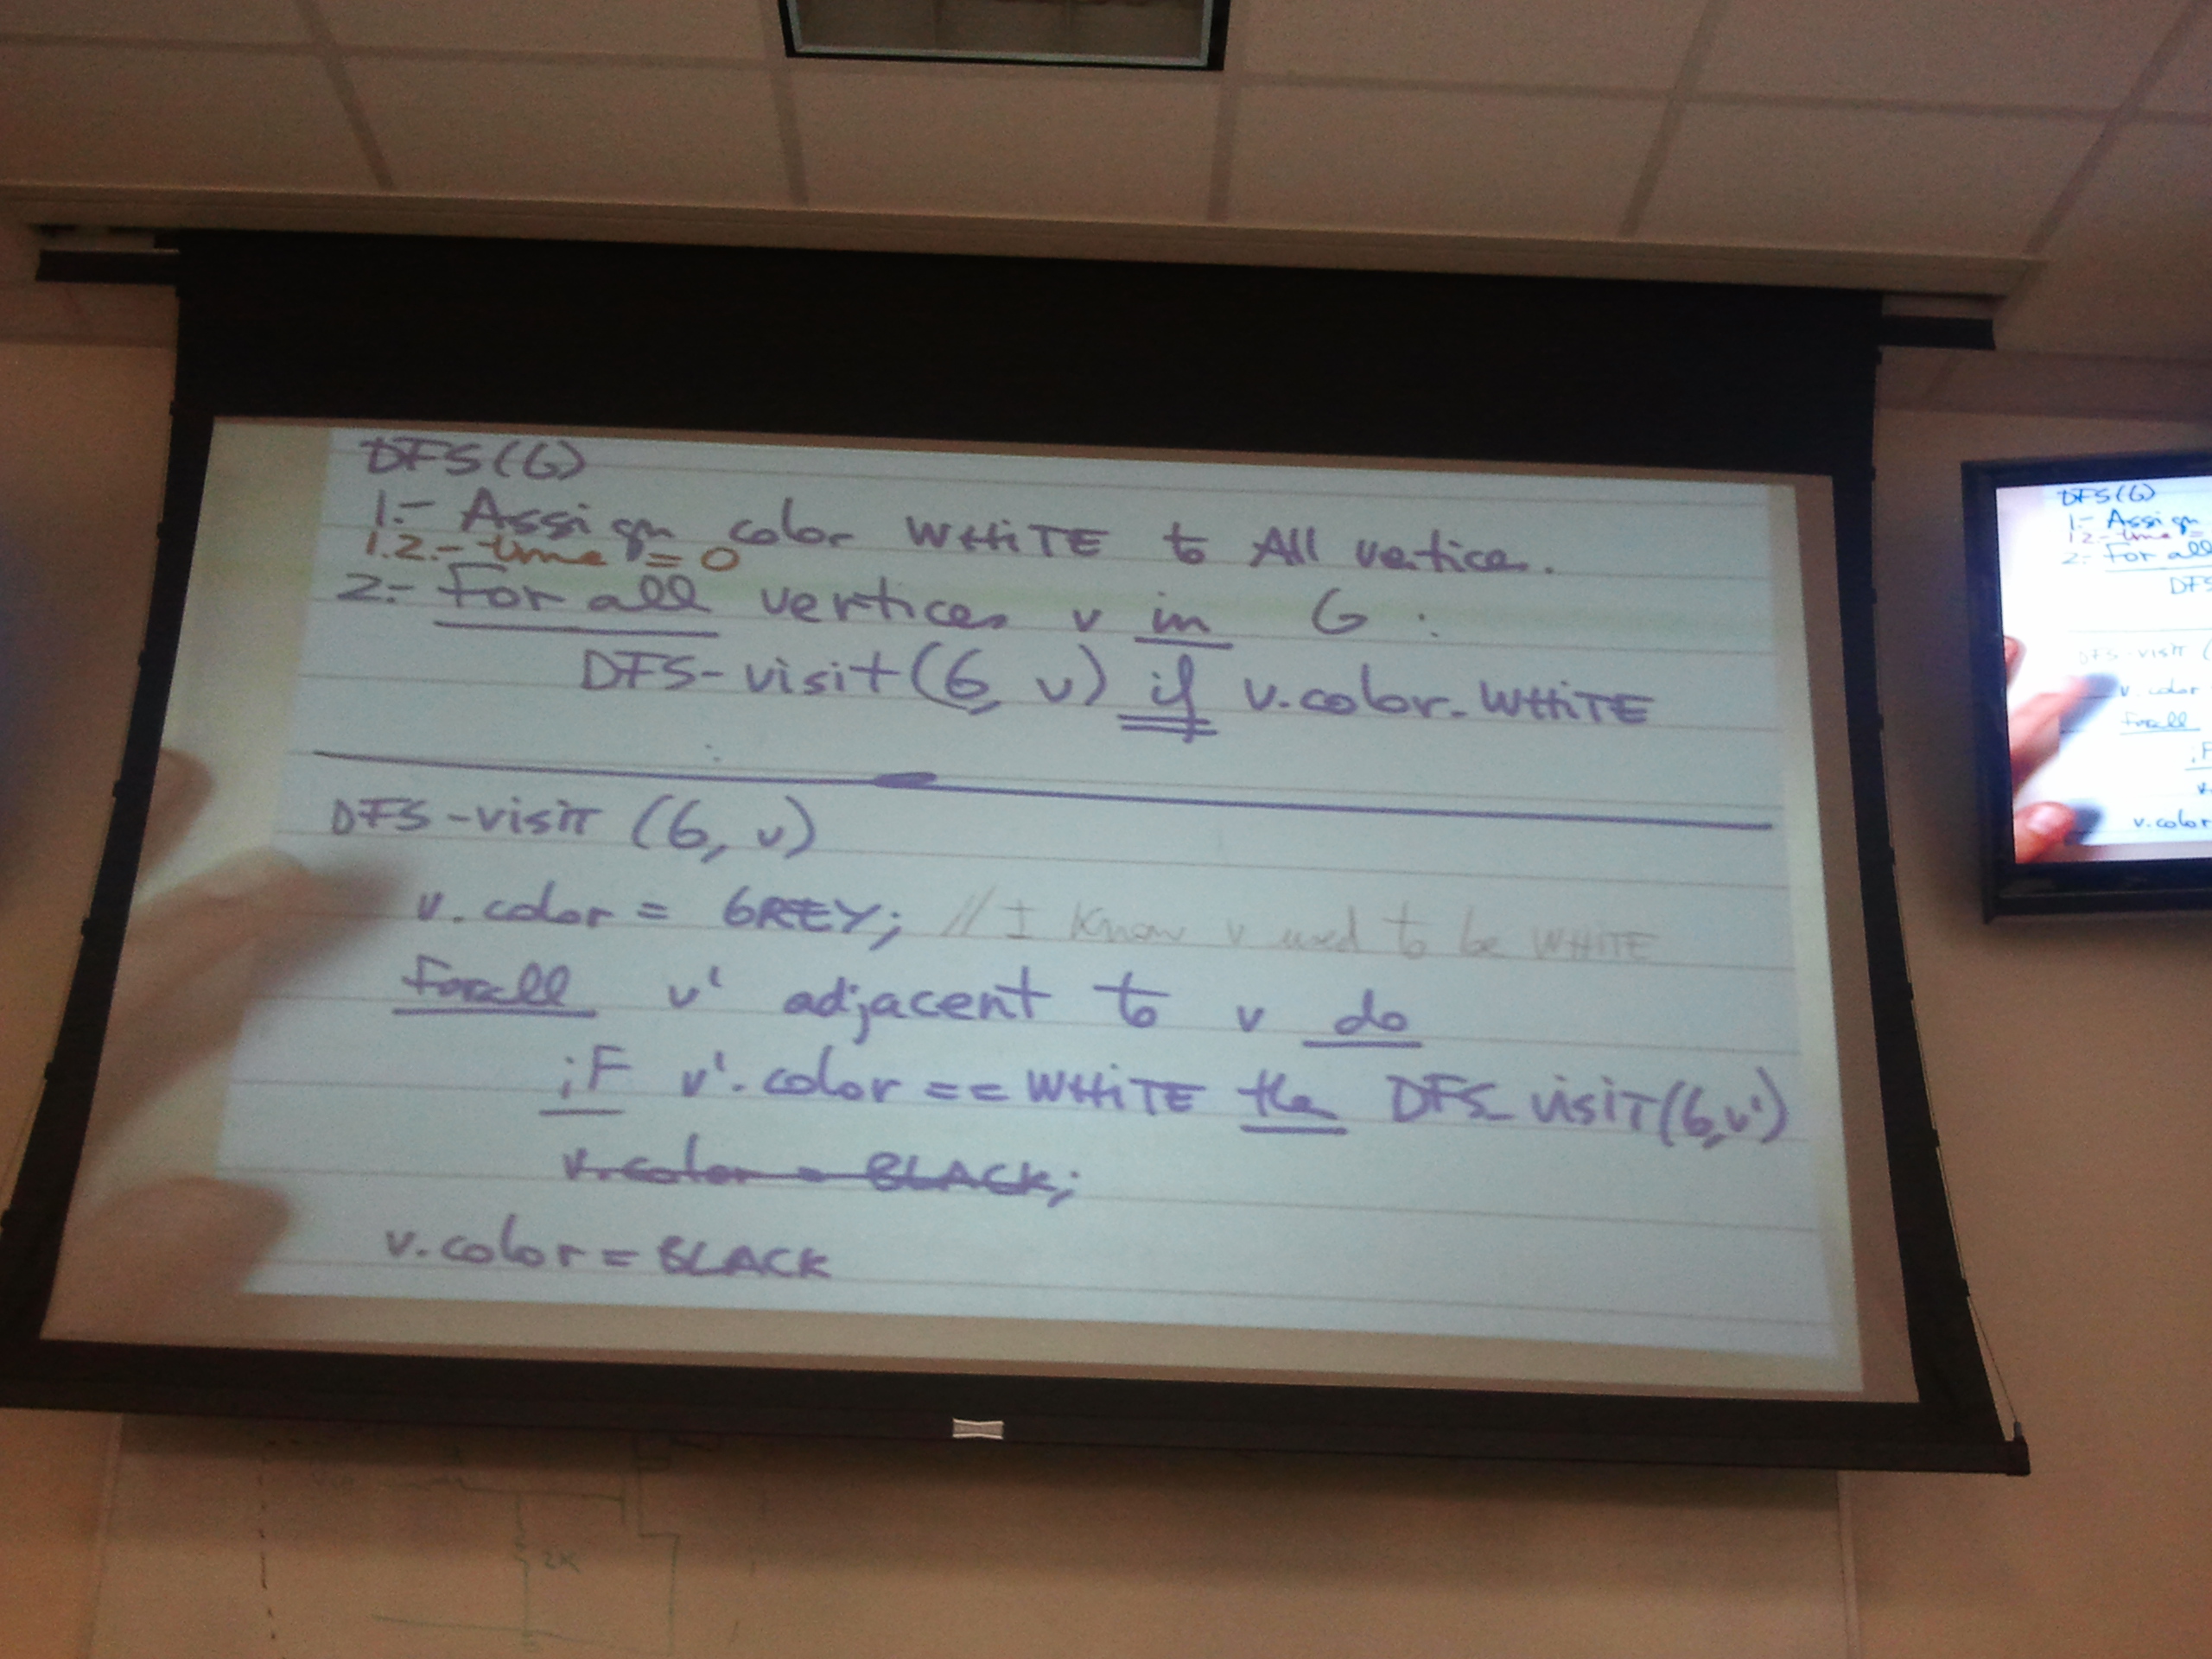 DFS(G)
1.- Assign color WHITE to All vertices.
1.2.- time = 0
2.- For all vertices v in G :
DFS-visit(G, v) if v.color = WHITE
DFS-visit (G, v)
v.color = GREY; // I know v used to be WHITE
Forall v' adjacent to v do
iF v'.color == WHITE then DFS_visit(G,v')
v.color = BLACK;
v.color = BLACK
DFS(G)
1.- Assign
1.2- time =
2- For all
DFS
DFS-visit (
v.color
Forall
iF
v.
v.color
2K